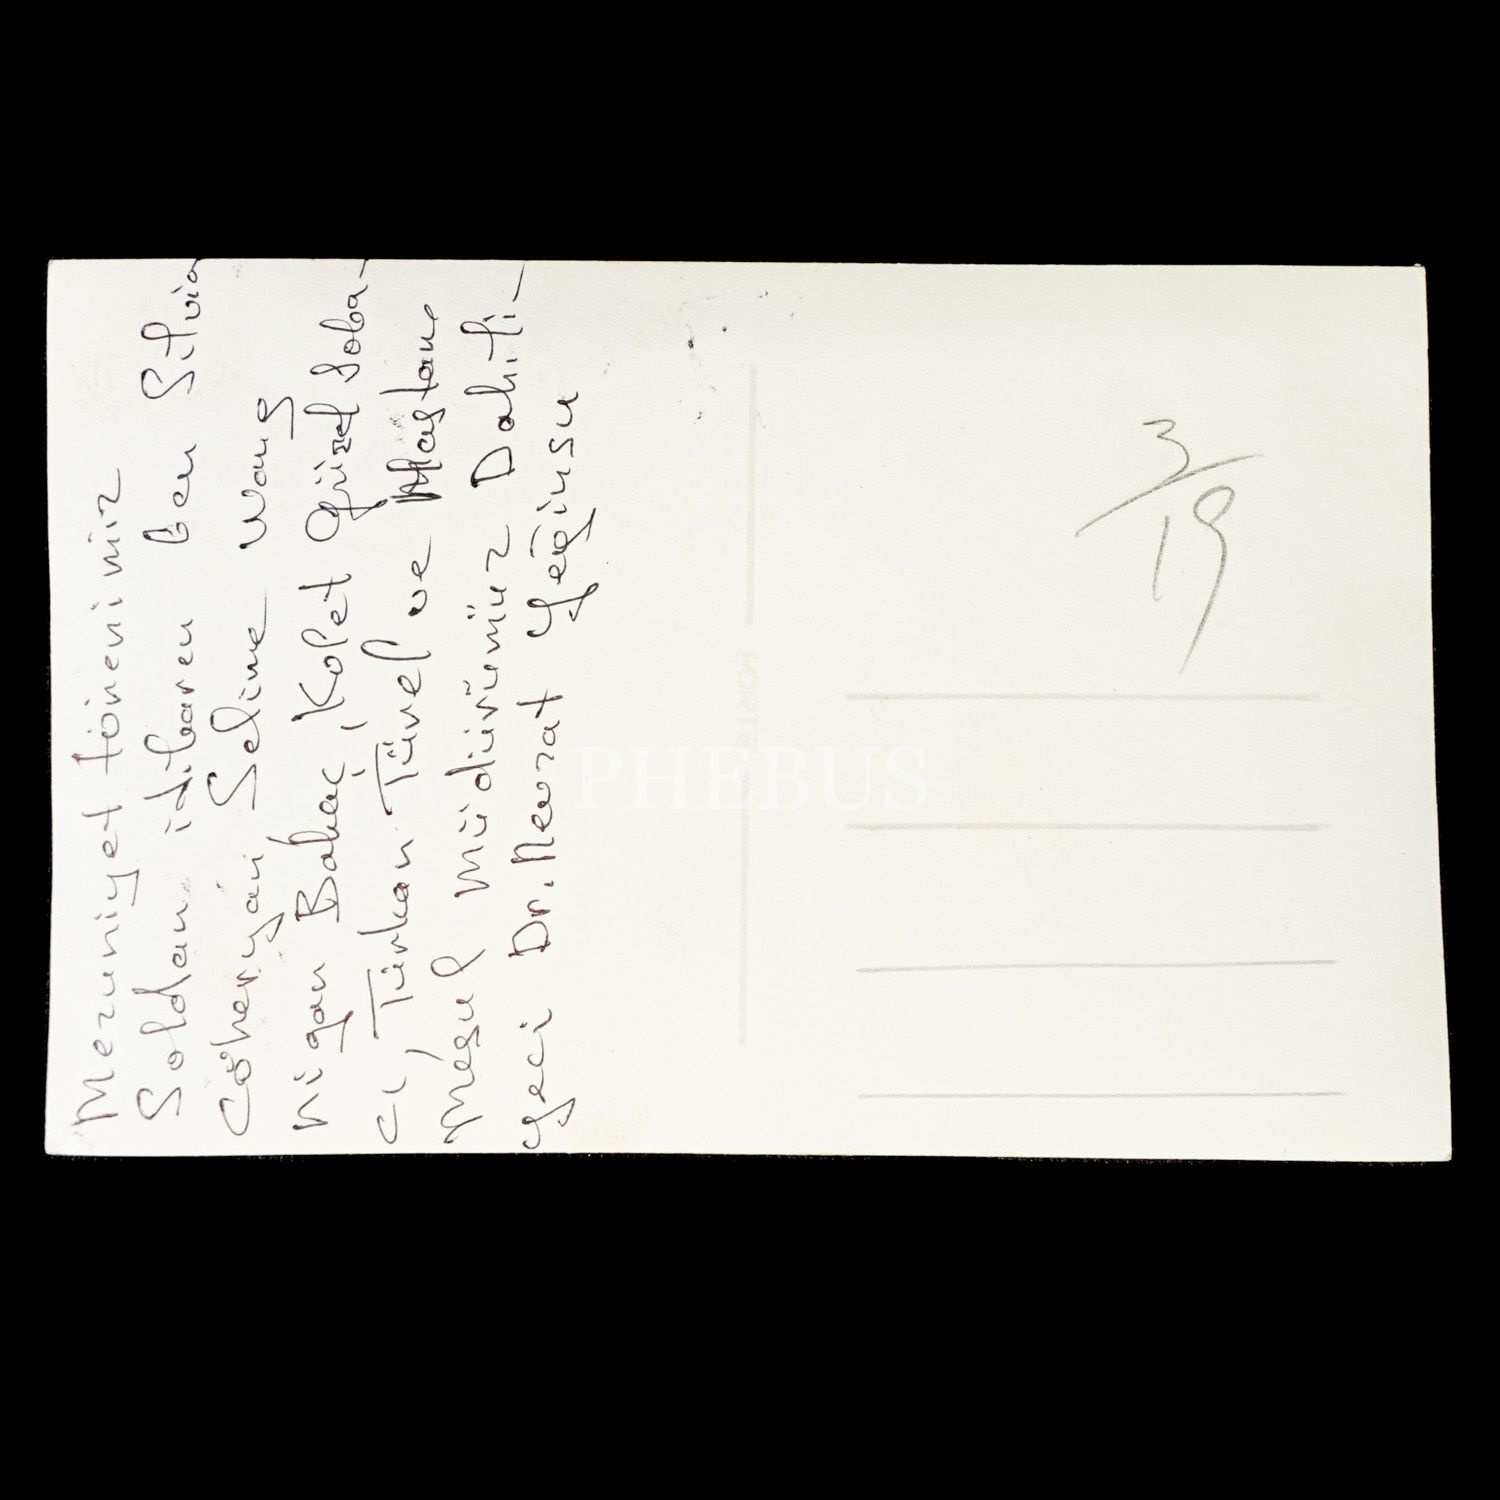 Mezuniyet törenimiz
Soldan itibaren ben Silvia
Cöheryan Selime Wang
Nigan Bahçi, Kolet Güzel Soba-
cı, Türkan Türel ve Mastane
Mésul müdürümüz Dahili-
yeci Dr. Nevzat Yeğinsu
3/19
PHEBUS